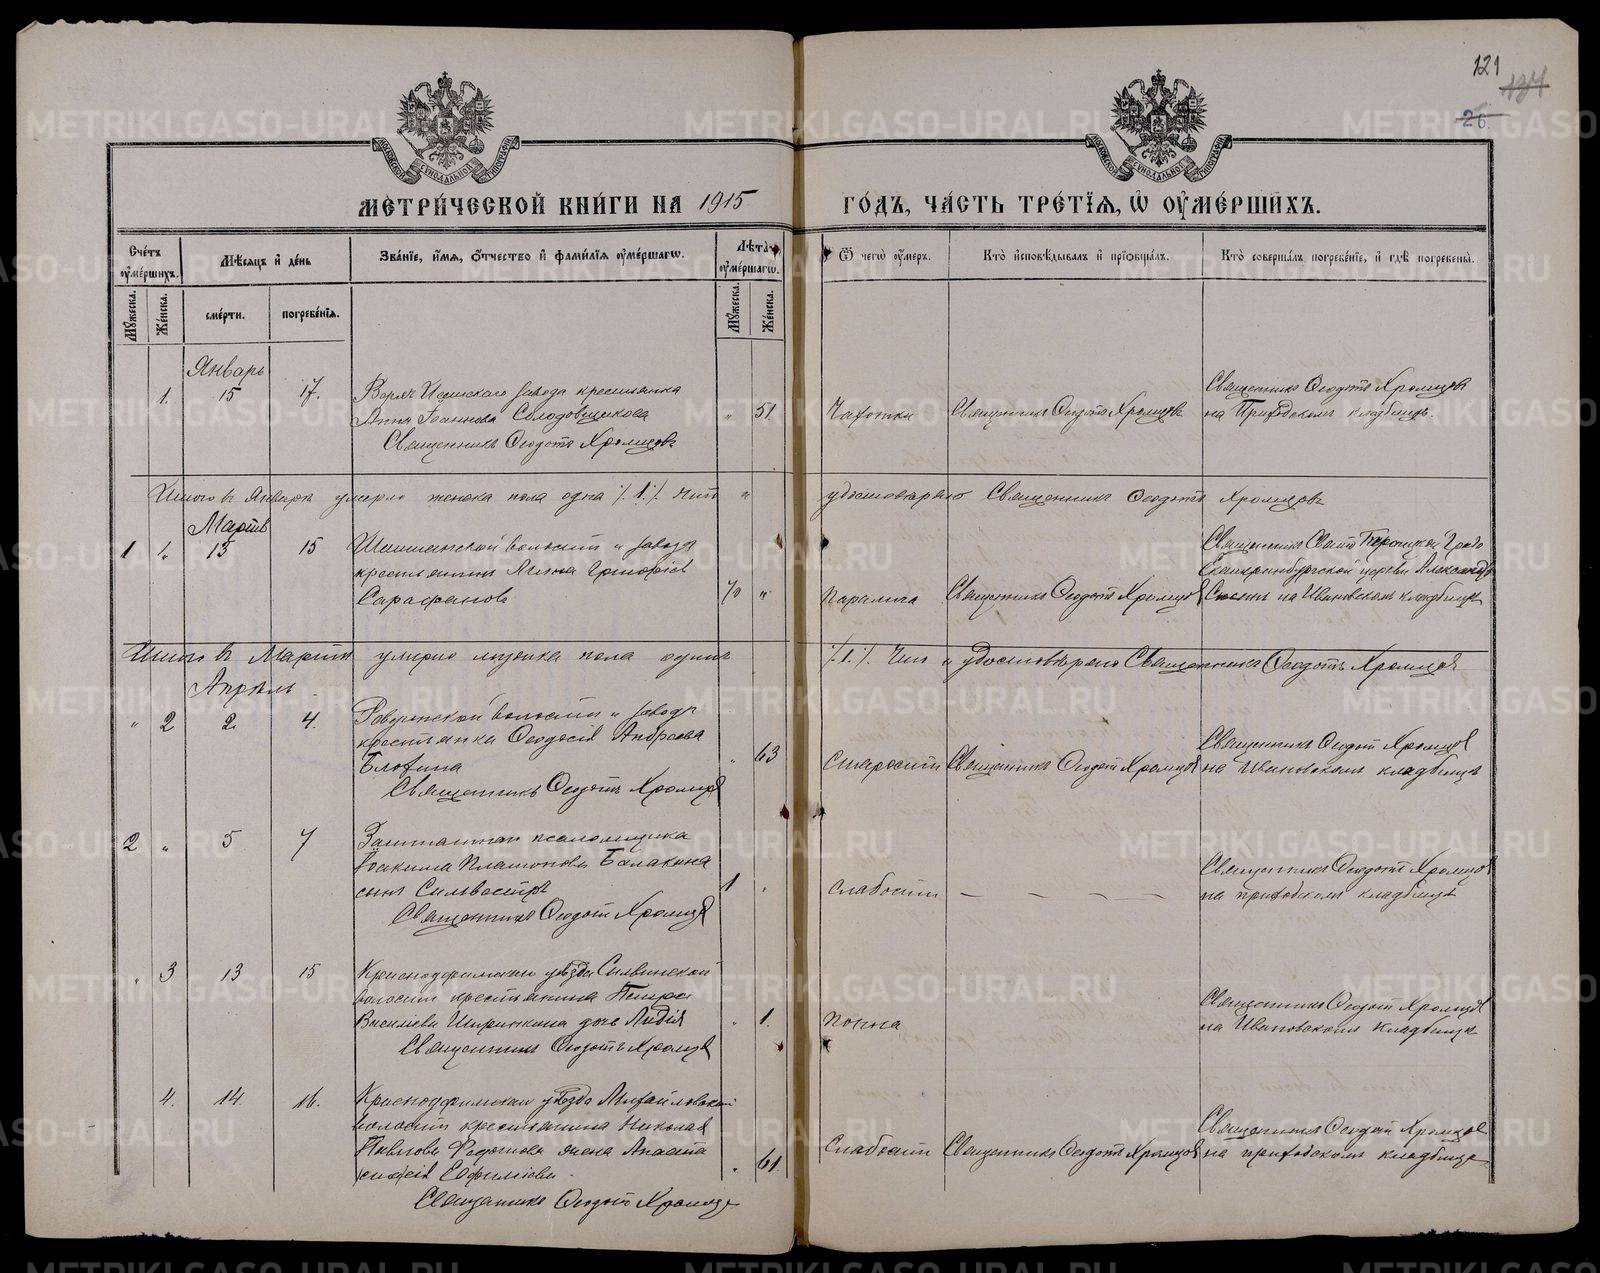 121
134
26.
МОСКОВСКОЙ СѴНОДАЛЬНОЙ ТИПОГРАФІИ
МОСКОВСКОЙ СѴНОДАЛЬНОЙ ТИПОГРАФІИ
МЕТРИ́ЧЕСКОЙ КНИ́ГИ НА 1915 ГО́ДЪ, ЧА́СТЬ ТРЕ́ТЇѦ, Ѡ ОУ҆МЕ́РШИХЪ.
Сче́тъ оу҆ме́ршихъ.
Мѣ́сяцъ и҆ де́нь
Зва́нїе, и҆́мя, ѻ҆́тчество и҆ фами́лїя оу҆ме́ршагѡ.
Лѣ́та оу҆ме́ршагѡ.
Ѿ чегѡ̀ оу҆́меръ.
Кто̀ и҆сповѣ́дывалъ и҆ прїѡбща́лъ.
Кто̀ соверша́лъ погребе́нїе, и҆ гдѣ̀ погребены̀.
Мꙋ́жеска.
Же́нска.
сме́рти.
погребе́нїя.
Мꙋ́жеска.
Же́нска.
Январь
1. 15 17.
завода крестьянка
Анна Іоаннова Солодовщикова
Священникъ Ѳеодотъ Хромцовъ
" 51
Чахотки
Священникъ Ѳеодотъ Хромцовъ
Священникъ Ѳеодотъ Хромцовъ
на Приходскомъ кладбищѣ.
Итого въ Январѣ умерло женска пола одна /.1./. Чит. и удостовѣрено Священникъ Ѳеодотъ Хромцовъ
Мартъ
1 " 13 15
волости и завода
крестьянинъ Григоріевъ
Сарафановъ
70 "
Паралича
Священникъ Ѳеодотъ Хромцовъ
Священникъ Градо
Екатеринбургской церкви Александръ
на Ивановскомъ кладбищѣ
Итого въ Мартѣ умерло мужска пола одинъ /.1./. Чит. и удостовѣрено Священникъ Ѳеодотъ Хромцовъ
Апрѣль
" 2 2 4.
волости и завода
крестьянка Ѳеодосія Андреева
Блохина
Священникъ Ѳеодотъ Хромцовъ
" 63
Старости
Священникъ Ѳеодотъ Хромцовъ
Священникъ Ѳеодотъ Хромцовъ
на Ивановскомъ кладбищѣ
2 " 5 7
Заштатнаго псаломщика
Іоакима Платонова Балакина
сынъ Сильвестръ
Священникъ Ѳеодотъ Хромцовъ
1 "
Слабости
Священникъ Ѳеодотъ Хромцовъ
на приходскомъ кладбищѣ
" 3 13 15
Красноуфимскаго уѣзда Сылвинской
волости крестьянина Петра
Василіева Ширинкина дочь Лидія
Священникъ Ѳеодотъ Хромцовъ
" 1.
Поноса
Священникъ Ѳеодотъ Хромцовъ
на Ивановскомъ кладбищѣ
4. 14. 16.
Красноуфимскаго уѣзда Михайловской
волости крестьянина Николая
Павлова жена Анаста
сія Евфиміева.
Священникъ Ѳеодотъ Хромцовъ
" 61
Слабости
Священникъ Ѳеодотъ Хромцовъ
Священникъ Ѳеодотъ Хромцовъ
на приходскомъ кладбищѣ
METRIKI.GASO-URAL.RU